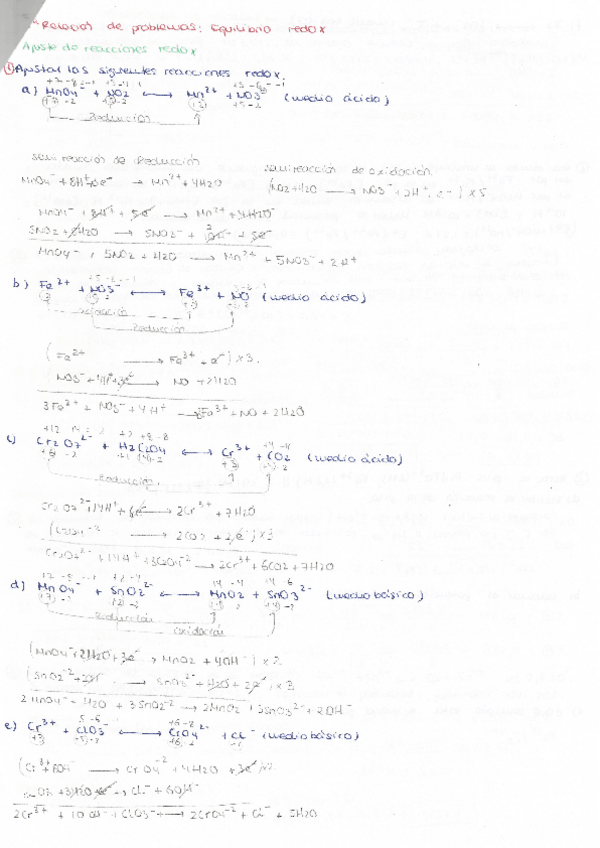 Relación de problemas: Equilibrio redox
Ajuste de reacciones redox
① Ajustar las siguientes reacciones redox.
a) MnO4⁻ + NO2 ⟷ Mn²⁺ + NO3⁻ (medio ácido)
Reducción
semirreacción de Reducción
semireacción de oxidación.
MnO4⁻ + 8H⁺ + 5e⁻ → Mn²⁺ + 4H2O
(NO2 + H2O → NO3⁻ + 2H⁺ + e⁻) × 5
MnO4⁻ + 8H⁺ + 5e⁻ → Mn²⁺ + 4H2O
5NO2 + 5H2O → 5NO3⁻ + 10H⁺ + 5e⁻
MnO4⁻ + 5NO2 + H2O → Mn²⁺ + 5NO3⁻ + 2H⁺
b) Fe²⁺ + NO3⁻ ⟷ Fe³⁺ + NO (medio ácido)
Oxidación
Reducción
(Fe²⁺ → Fe³⁺ + e⁻) × 3.
NO3⁻ + 4H⁺ + 3e⁻ → NO + 2H2O
3Fe²⁺ + NO3⁻ + 4H⁺ → 3Fe³⁺ + NO + 2H2O
c) Cr2O7²⁻ + H2C2O4 ⟷ Cr³⁺ + CO2 (medio ácido)
Reducción
Cr2O7²⁻ + 14H⁺ + 6e⁻ → 2Cr³⁺ + 7H2O
(C2O4⁻² → 2CO2 + 2e⁻) × 3
Cr2O7²⁻ + 14H⁺ + 3C2O4⁻² → 2Cr³⁺ + 6CO2 + 7H2O
d) MnO4⁻ + SnO2²⁻ ⟷ MnO2 + SnO3²⁻ (medio básico)
Reducción
oxidación
(MnO4⁻ + 2H2O + 3e⁻ → MnO2 + 4OH⁻) × 2
(SnO2⁻² + 2OH⁻ → SnO3²⁻ + H2O + 2e⁻) × 3
2MnO4⁻ + H2O + 3SnO2⁻² → 2MnO2 + 3SnO3²⁻ + 2OH⁻
e) Cr³⁺ + ClO3⁻ ⟷ CrO4²⁻ + Cl⁻ (medio básico)
(Cr³⁺ + 8OH⁻ → CrO4⁻² + 4H2O + 3e⁻) ×2
ClO3⁻ + 3H2O + 6e⁻ → Cl⁻ + 6OH⁻
2Cr³⁺ + 10OH⁻ + ClO3⁻ → 2CrO4⁻² + Cl⁻ + 5H2O